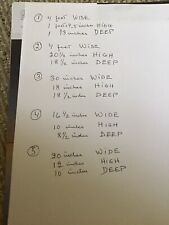 ① 4 feet WIDE
1 foot 7.5 inches HIGH
1 13 inches DEEP
② 4 feet WIDE
20 1/2 inches HIGH
18 1/2 inches DEEP
③ 30 inches WIDE
18 inches HIGH
18 1/2 inches DEEP
④ 16 1/2 inches WIDE
10 inches HIGH
8 1/2 inches DEEP
⑤ 20 inches WIDE
12 inches HIGH
10 inches DEEP